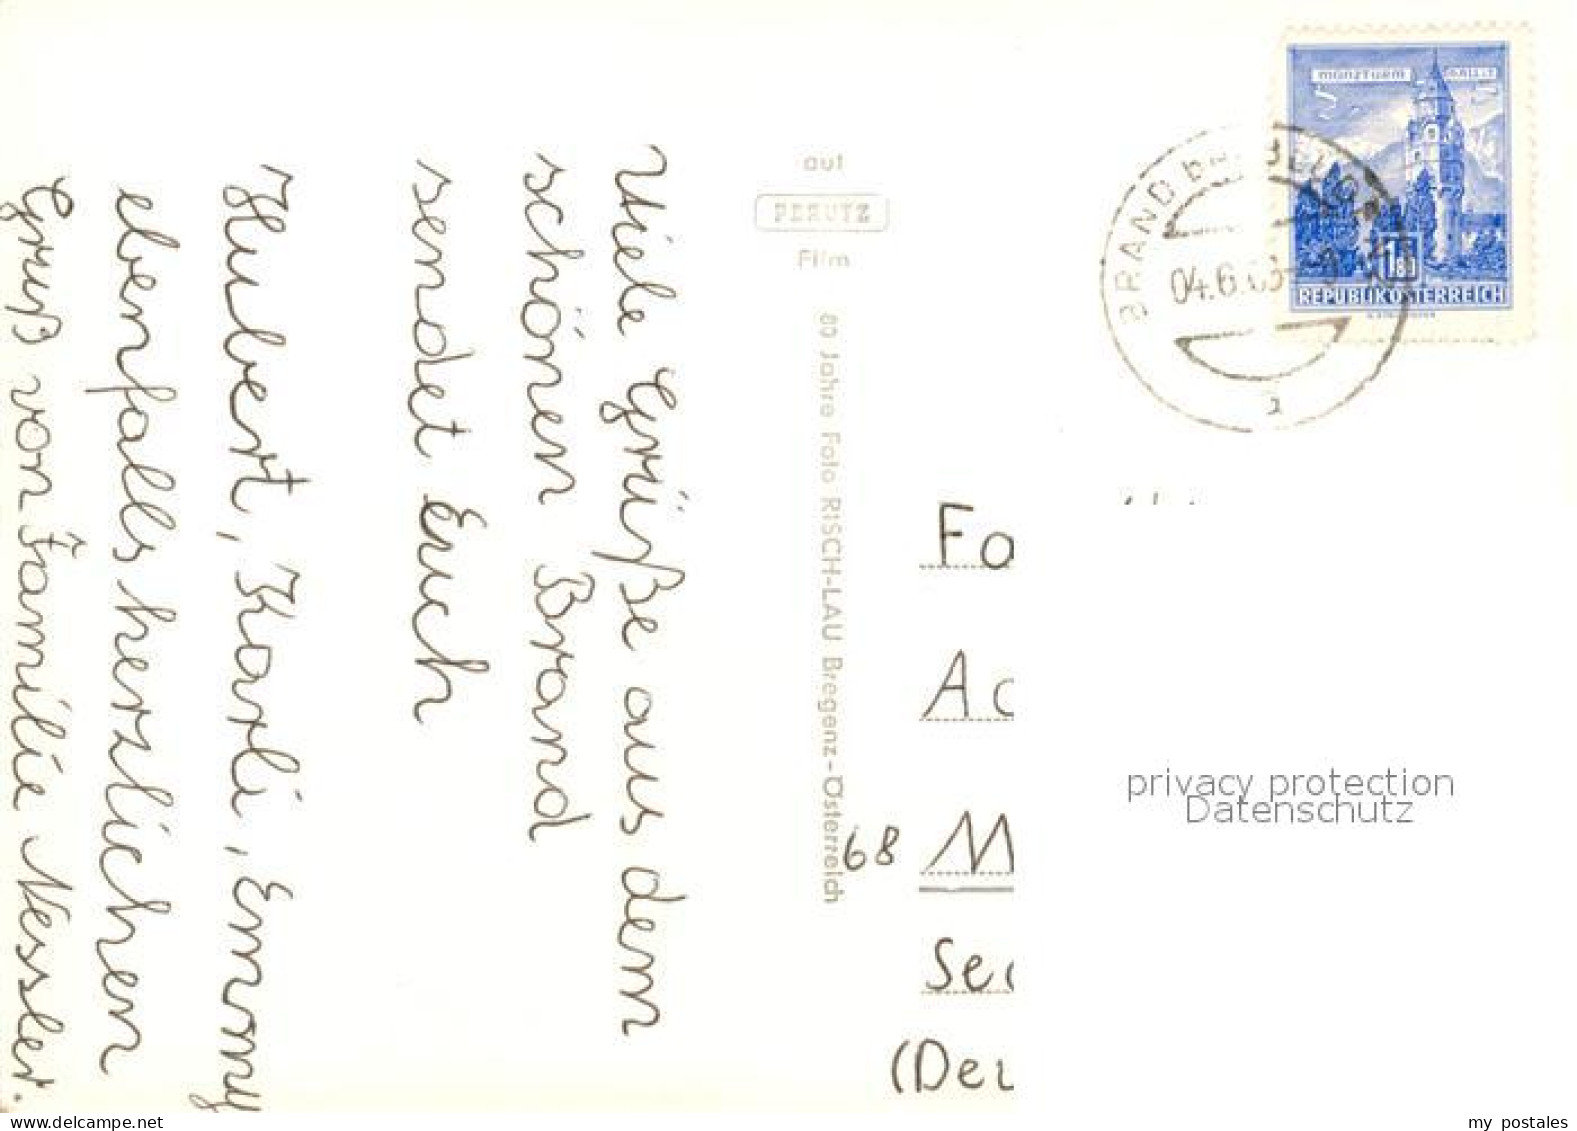 Viele Grüße aus dem
schönen Brand
sendet Euch
Hubert, Karli, Emmy
ebenfalls herzlichen
Gruß von Familie Nessler.
auf
PERUTZ
Film
80 Jahre Foto RISCH-LAU Bregenz-Österreich
MÜNZTURM HALL i. T.
S
1.80
REPUBLIK ÖSTERREICH
BRAND b. BLUD
04.6.63
Fo
Ac
68 M
See
(Deu
privacy protection
Datenschutz
www.delcampe.net
my_postales